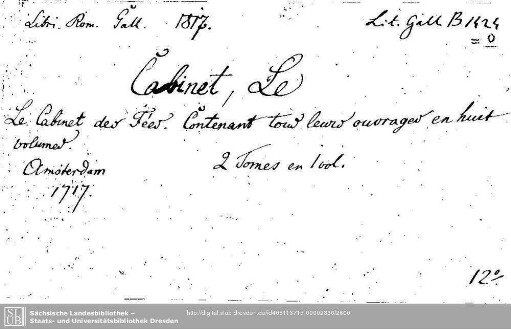 Libri. Rom. Gall. 1817.
Lit. Gall B 1424
= 0
Cabinet, Le
Le Cabinet des Fées. Contenant tous leurs ouvrages en huit
volumes.
2 Tomes en 1 vol.
Amsterdam
1717.
12º
Sächsische Landesbibliothek –
Staats- und Universitätsbibliothek Dresden